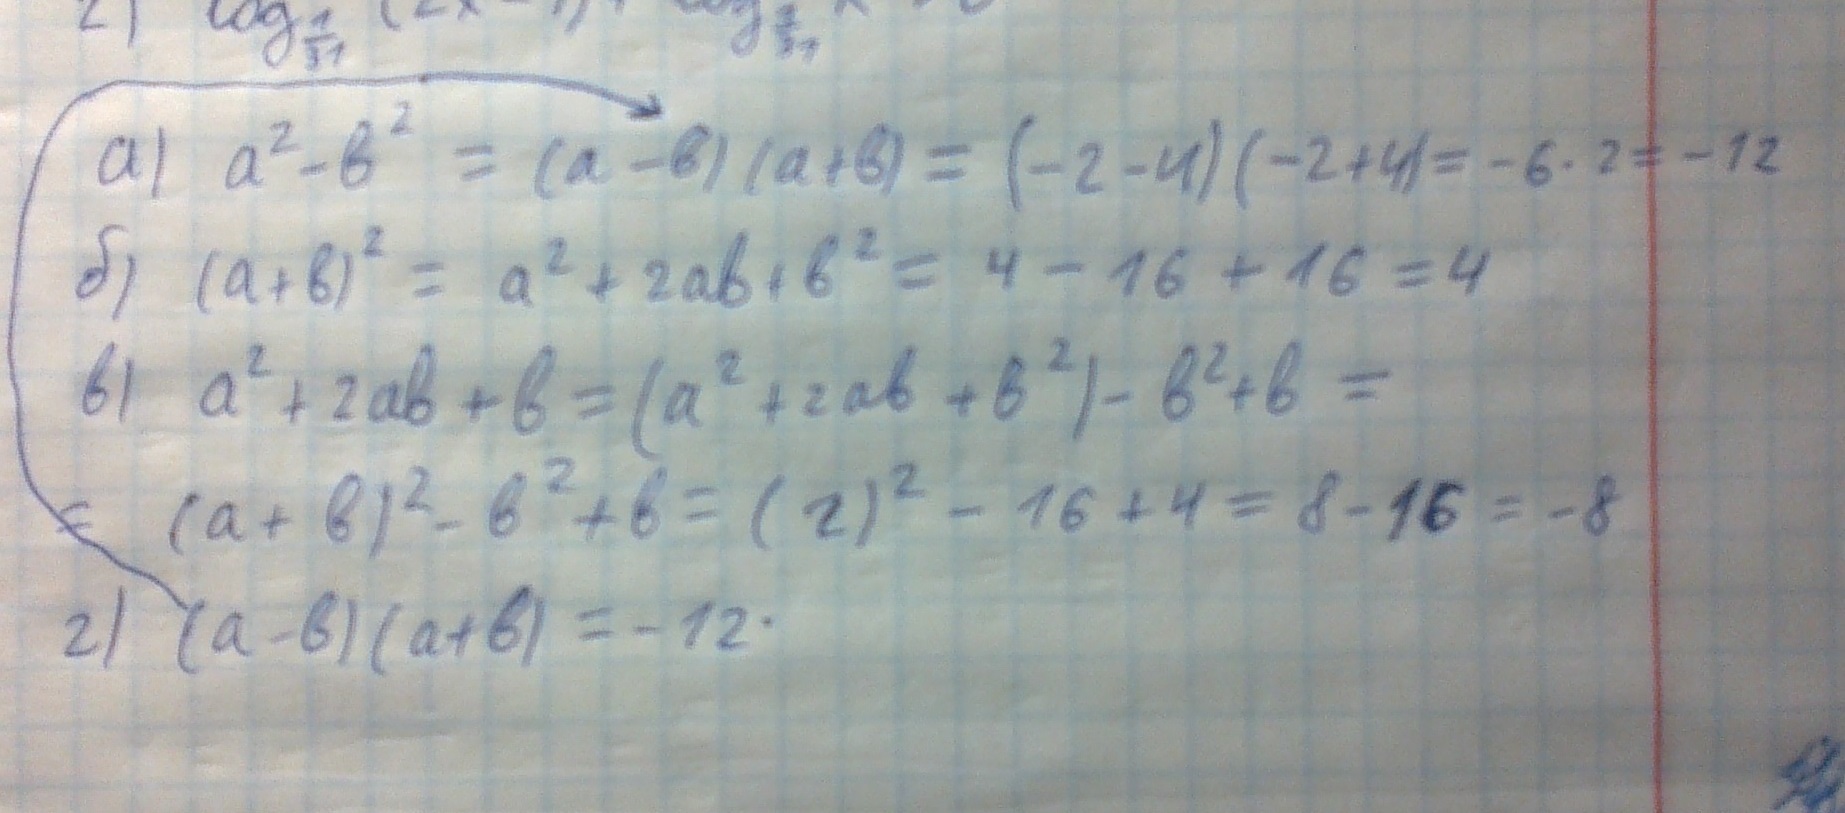 2) log 1/31 (2x
а) a² - в² = (a - в) (a + в) = (-2 - 4) (-2 + 4) = -6 · 2 = -12
б) (a + в)² = a² + 2aв + в² = 4 - 16 + 16 = 4
в) a² + 2aв + в = (a² + 2aв + в²) - в² + в =
= (a + в)² - в² + в = (2)² - 16 + 4 = 8 - 16 = -8
г) (a - в) (a + в) = -12.